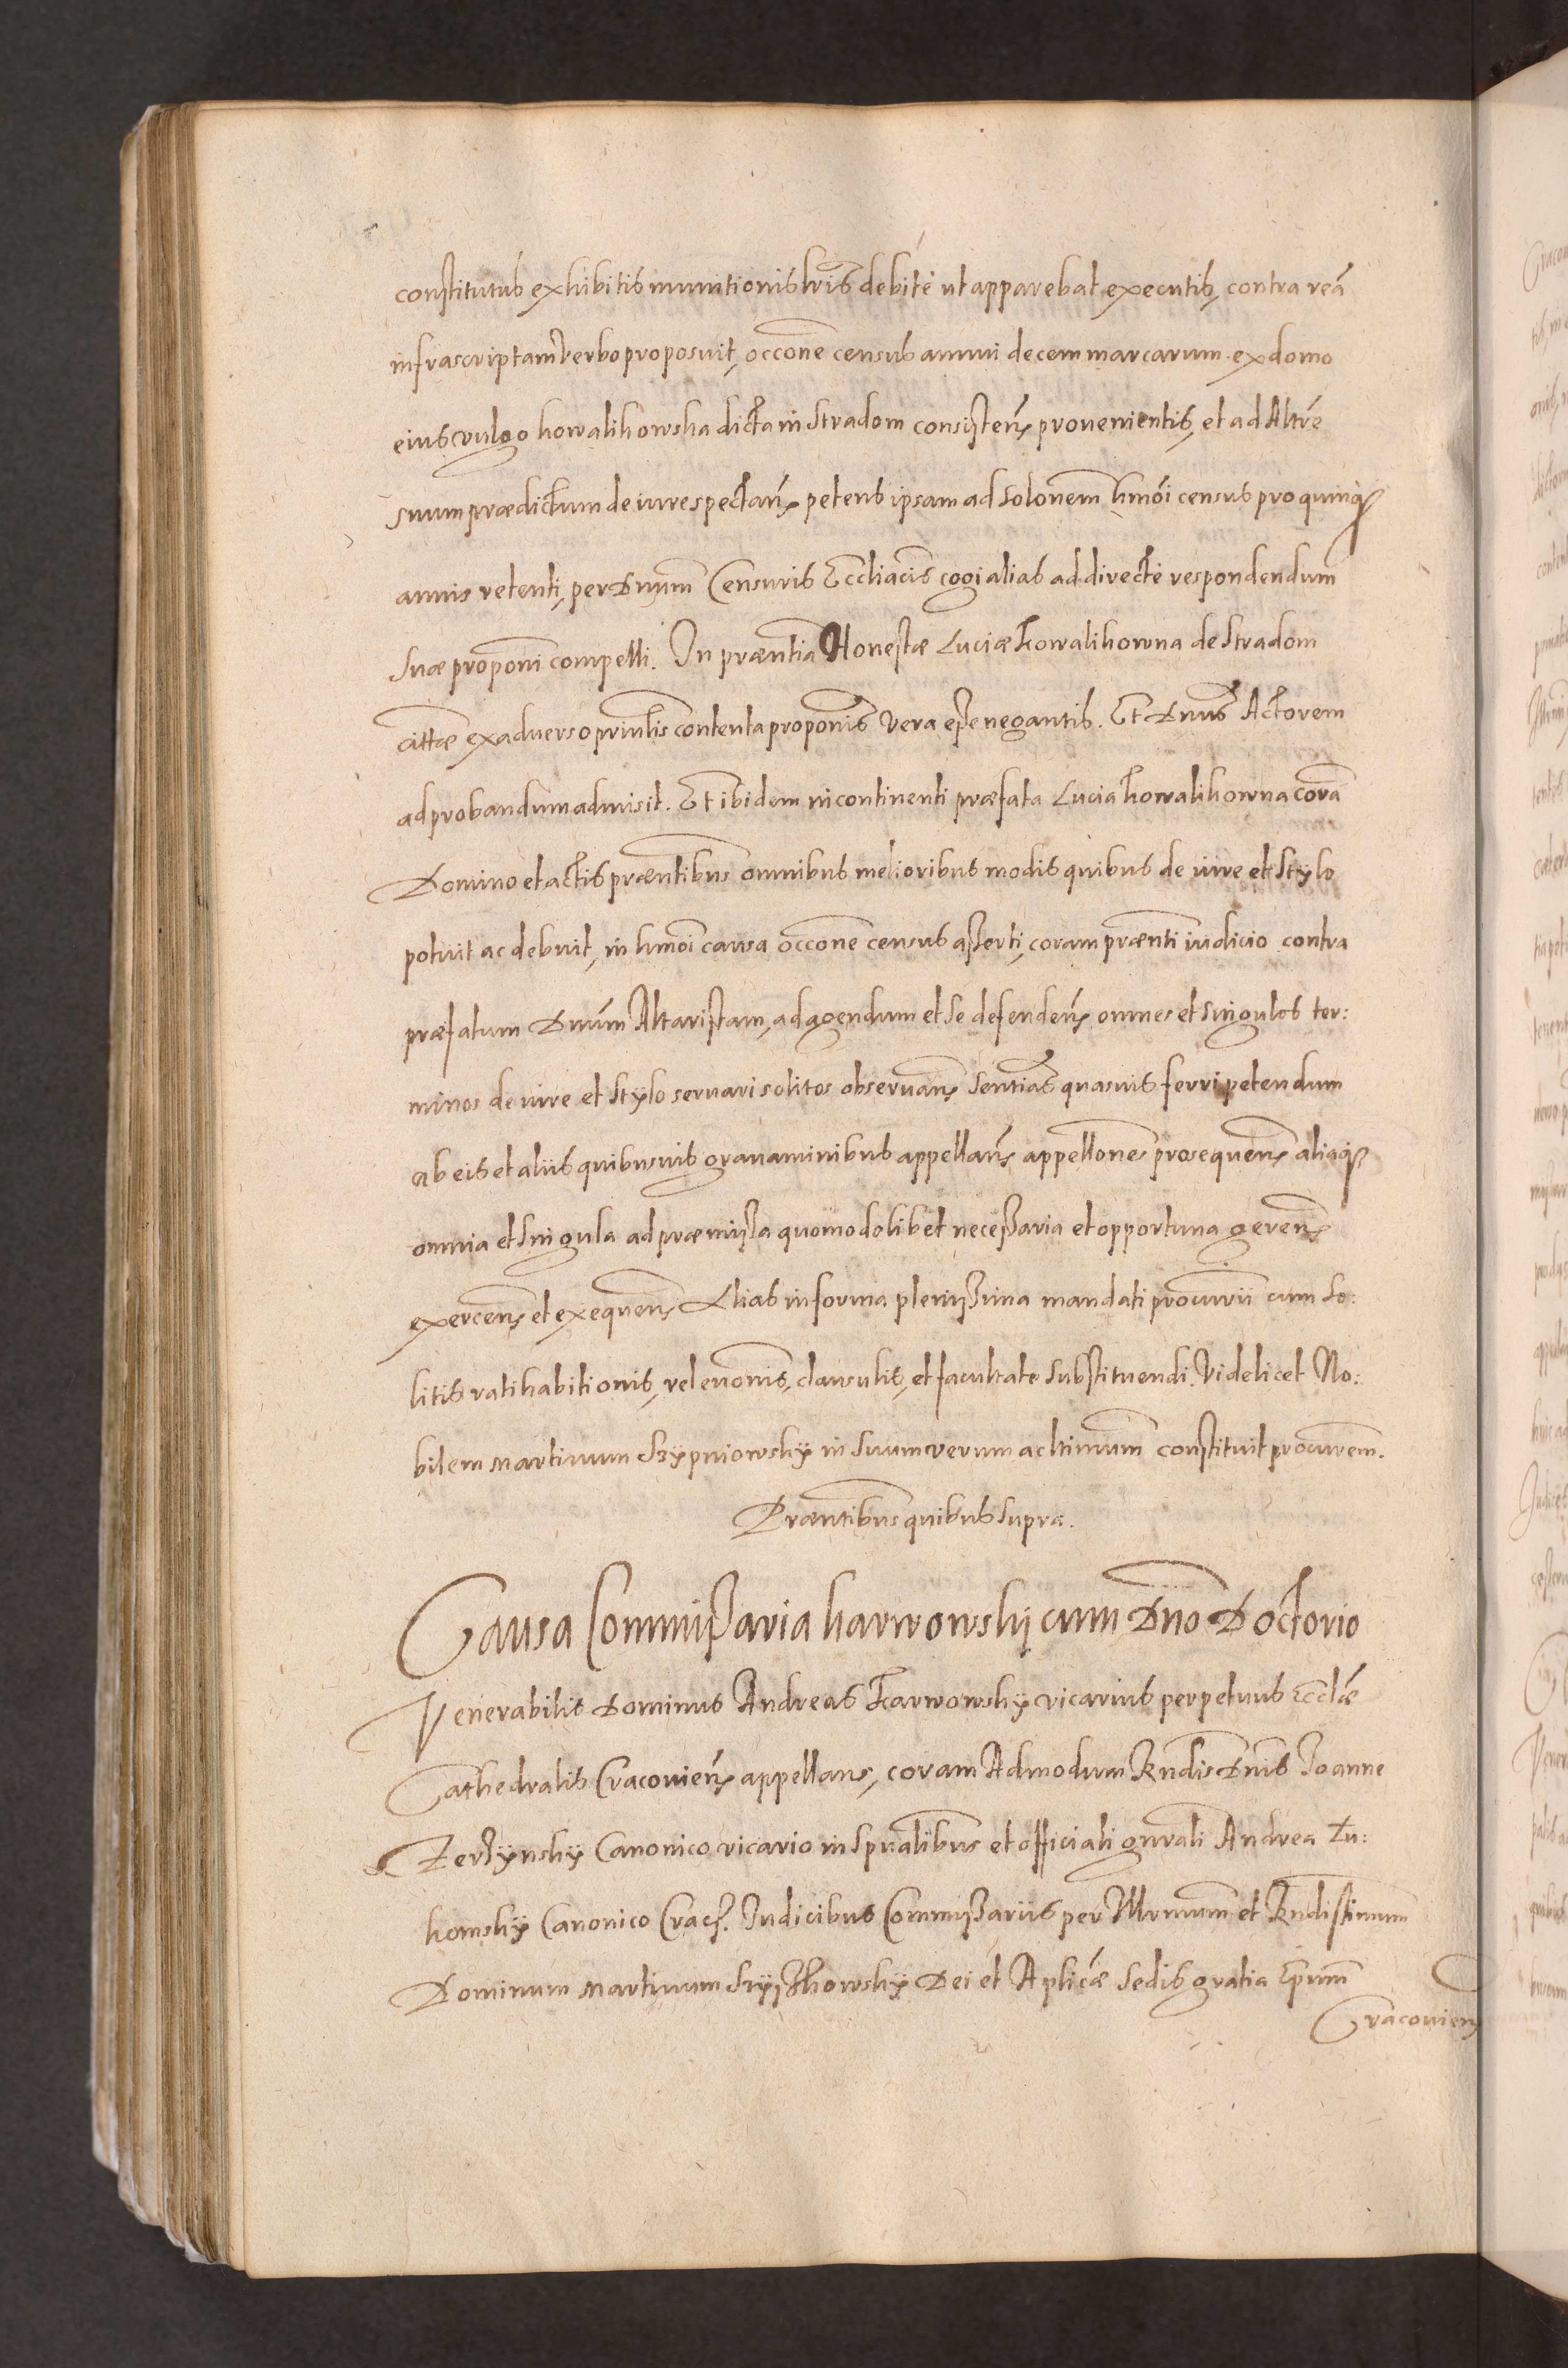 constitutus exhibitis munitionis lris debite ut apparebat executis, contra reã
infrascriptam verbo proposuit, occõne census annui decem marcarum ex domo
eius vulgo kowalikowska dicta in Stradom consisteñ provenientis, et ad Altre
suum prædictum de iure spectañ petens ipsam ad solonem hmõi census pro quinq
annis retenti, per Dnum Censuris Eccliacis cogi alias ad directe respondendum
suæ proponi compelli. In præntia Honestæ Luciæ Kowalikowna de Stradom
cittæ ex adverso prinlis contenta proponis vera esse negantis. Et Dnus Actorem
ad probandum admisit. Et ibidem incontinenti præfata Lucia Kowalikowna corã
Domino et actis præntibus omnibus melioribus modis quibus de iure et stylo
potuit ac debuit, in hmõi causa occõne census asserti, coram prænti iudicio contra
præfatum Dnum Altaristam, ad agendum et se defendeñ omnes et singulos ter:
minos de iure et stylo servari solitos observañ sentias quasvis ferri petendum
ab eis et aliis quibusvis gravaminibus appellañ appellones prosequeñ aliaq
omnia et singula ad præmissa quomodolibet necessaria et opportuna gereñ
exerceñ et exequeñ Alias in forma plenissima mandati procurii cum so:
litis ratihabitionis, relevonis, clausulis, et facultate substituendi. Videlicet No:
bilem Martinum Szypniowsky in suum verum ac ltimum constituit procurem.
Præntibus quibus supra.
Causa Commissaria karwowskj cum Dno Doctorio
Venerabilis Dominus Andreas Karwowsky vicarius perpetuus eccliæ
Cathedralis Cracovieñ appellans, coram Admodum Rndis Dnis Joanne
Zerzynsky Canonico vicario in spualibus et officiali gnrali Andrea Lu:
komsky Canonico Crac. Judicibus Commissariis per Illrmum et Rndissimum
Dominum Martinum Szyszkowsky Dei et Aplicæ Sedis gratia Epum
Cracovieñ